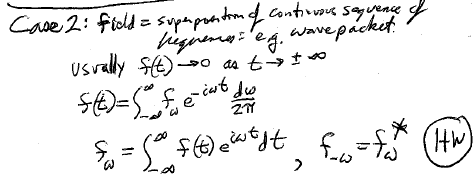 Case 2: field = superposition of continuous sequence of
frequencies: e.g. wavepacket.
usually f(t) → 0 as t → ± ∞
f(t) = ∫_{-∞}^{∞} f_ω e^{-iωt} dω/2π
f_ω = ∫_{-∞}^{∞} f(t) e^{iωt} dt , f_{-ω} = f_ω^* (HW)